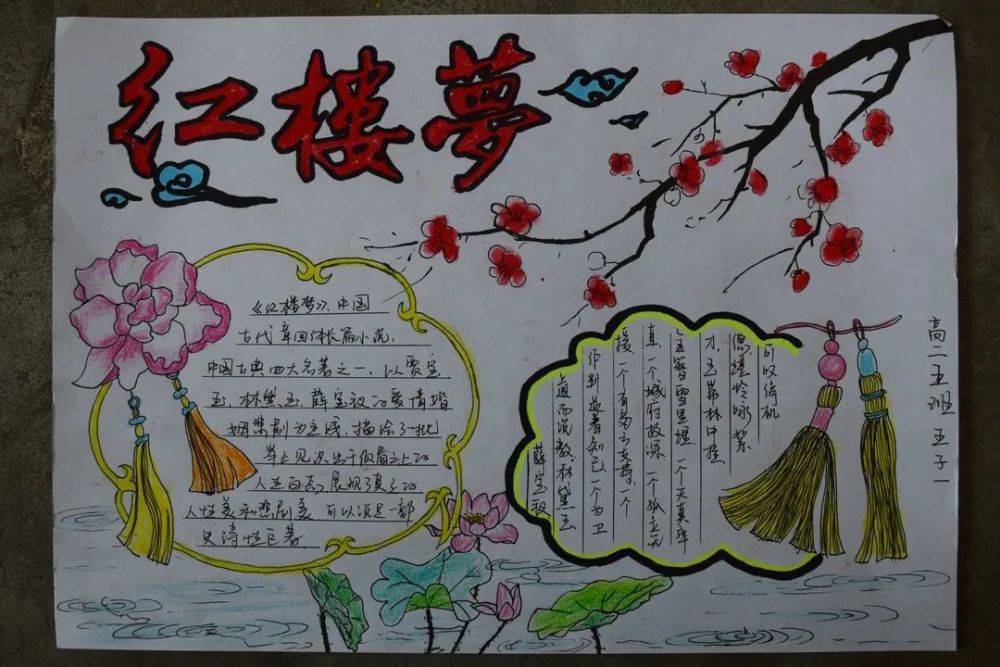 红楼夢
《红楼梦》，中国
古代章回体长篇小说，
中国古典四大名著之一，以贾宝
玉、林黛玉、薛宝钗的爱情婚
姻悲剧为主线，描绘了一批
举止见识出于须眉之上的
人生百态，展现了真正的
人性美和悲剧美，可以说是一部
史诗性巨著
可叹停机
德堪怜咏絮
才，玉带林中挂
金簪雪里埋 一个天真率
真一个城府极深 一个孤立无
援一个有多方支持。一个
作判逆者知己，一个为卫
道而说教。林黛玉
薛宝钗
高二五班 王子一